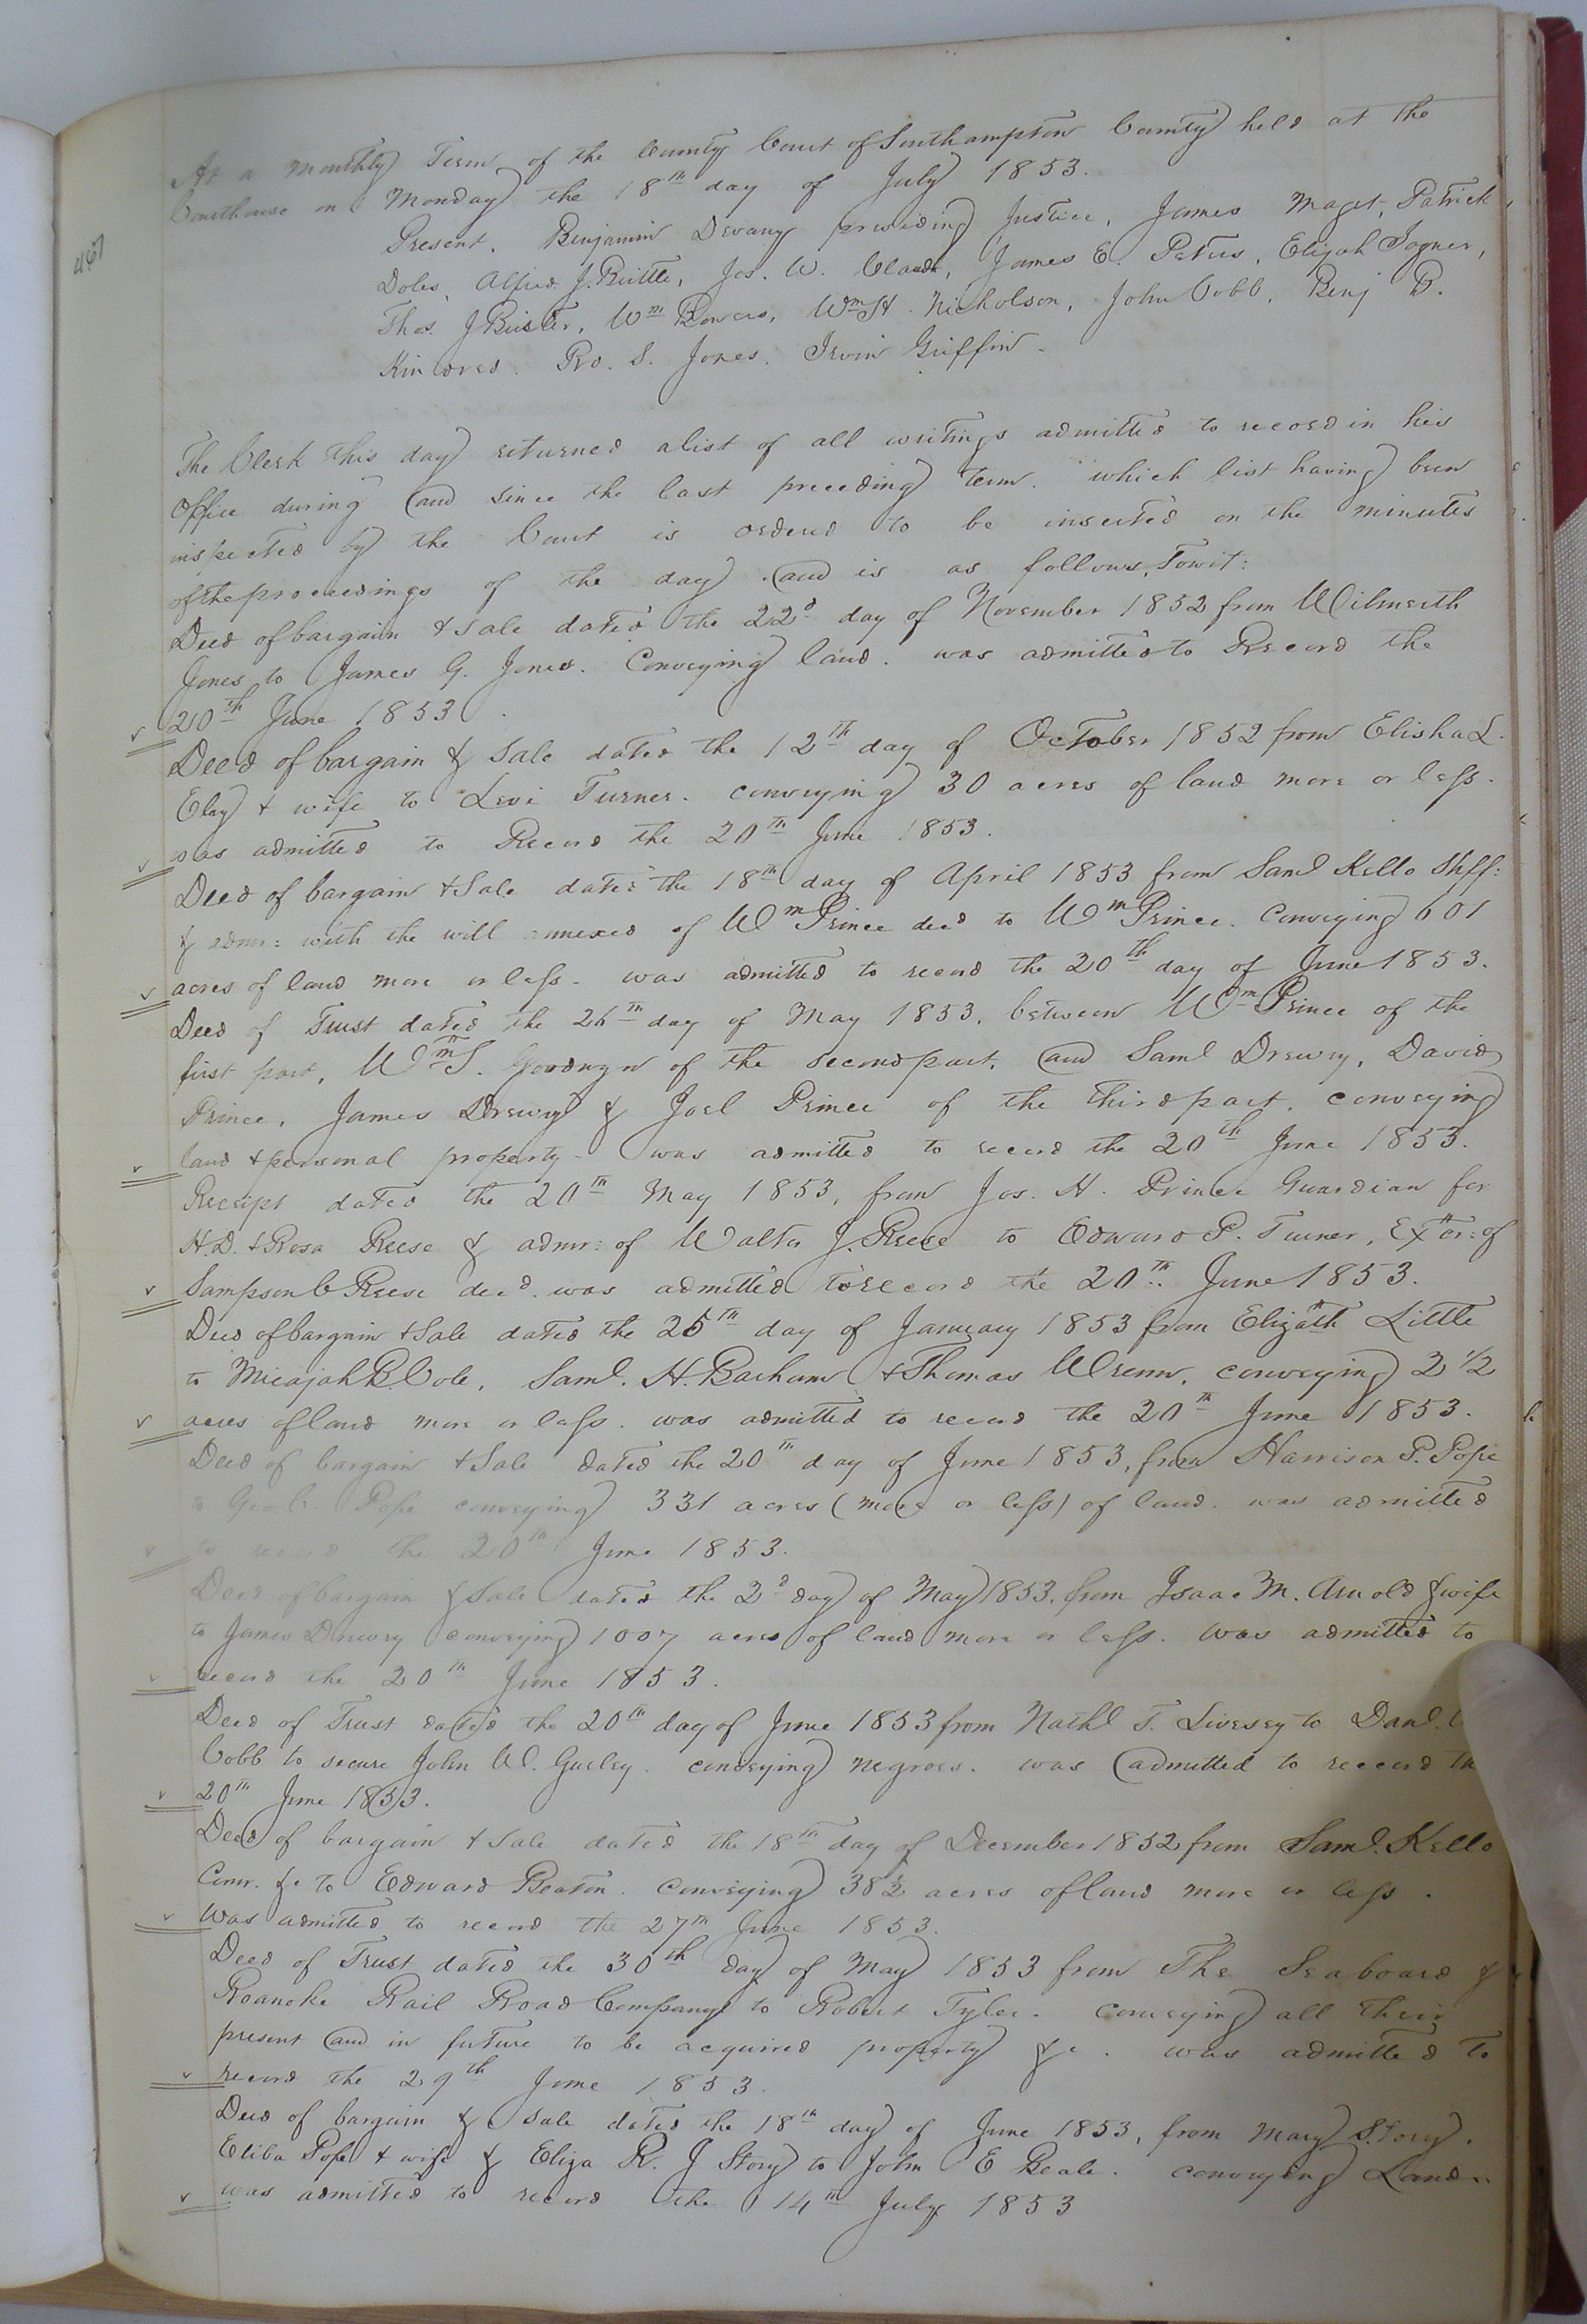 At a Monthly Term of the County Court of Southampton County held at the
Courthouse on Monday the 18th day of July 1853.
Present. Benjamin Devany presiding Justice, James Maget, Patrick
Doles, Alfred J. Brittle, Jos. W. Claud, James E. Peters, Elijah Joyner,
Thos. J Bister, Wm Bowers, Wm H. Nicholson, John Cobb, Benj B.
Kindred. Ro. S. Jones. Irvin Griffin.
467
The Clerk this day returned a list of all writings admitted to record in his
office during and since the last preceding Term. which list having been
inspected by the Court is ordered to be inserted on the minutes
of the proceedings of the day and is as follows, Towit:
Deed of bargain & sale dated the 22d day of November 1852 from Wilmerth
Jones to James G. Jones. Conveying land. was admitted to Record the
20th June 1853.
Deed of bargain & sale dated the 12th day of October 1852 from Elisha L.
Clay & wife to Levi Turner. conveying 30 acres of land more or less.
was admitted to Record the 20th June 1853.
Deed of bargain & Sale dated the 18th day of April 1853 from Saml Kello Shff:
& admr: with the will annexed of Wm Prince decd to Wm Prince. Conveying 601
acres of land more or less. was admitted to record the 20th day of June 1853.
Deed of Trust dated the 26th day of May 1853. between Wm Prince of the
first part, Wm S. Goodwyn of the second part, and Saml Drewry, David
Prince, James Drewry & Joel Prince of the third part. conveying
land & personal property. was admitted to record the 20th June 1853.
Receipt dated the 20th May 1853, from Jos. H. Prince Guardian for
H.D. & Rosa Reese & admr: of Walter J. Reese to Edward P. Turner, Extor: of
Sampson C Reese decd. was admitted to record the 20th June 1853.
Deed of bargain & Sale dated the 25th day of January 1853 from Elizath Little
to Micajah B. Cole, Saml. H. Barham & Thomas Wrenn, conveying 2 1/2
acres of land more or less. was admitted to record the 20th June 1853.
Deed of bargain & Sale dated the 20th day of June 1853, from Harrison P. Pope
to Geo C. Pope conveying 331 acres (more or less) of land. was admitted
to record the 20th June 1853.
Deed of bargain & Sale dated the 2d day of May 1853. from Isaac M. Arnold & wife
to James Drewry conveying 1007 acres of land more or less. was admitted to
record the 20th June 1853.
Deed of Trust dated the 20th day of June 1853 from Nathl T. Livesey to Danl.
Cobb to secure John W. Gurley. conveying negroes. was admitted to record the
20th June 1853.
Deed of bargain & Sale dated the 18th day of December 1852 from Saml. Kello
Comr. &c to Edward Beaton. Conveying 382 acres of land more or less.
was admitted to record the 27th June 1853.
Deed of Trust dated the 30th day of May 1853 from The Seaboard &
Roanoke Rail Road Company to Robert Tyler. conveying all their
present and in future to be acquired property &c. was admitted to
record the 29th June 1853.
Deed of bargain & Sale dated the 18th day of June 1853, from Mary Story.
Eliba Pope & wife & Eliza R. J Story to John E Beale. conveying Land.
was admitted to record the 14th July 1853